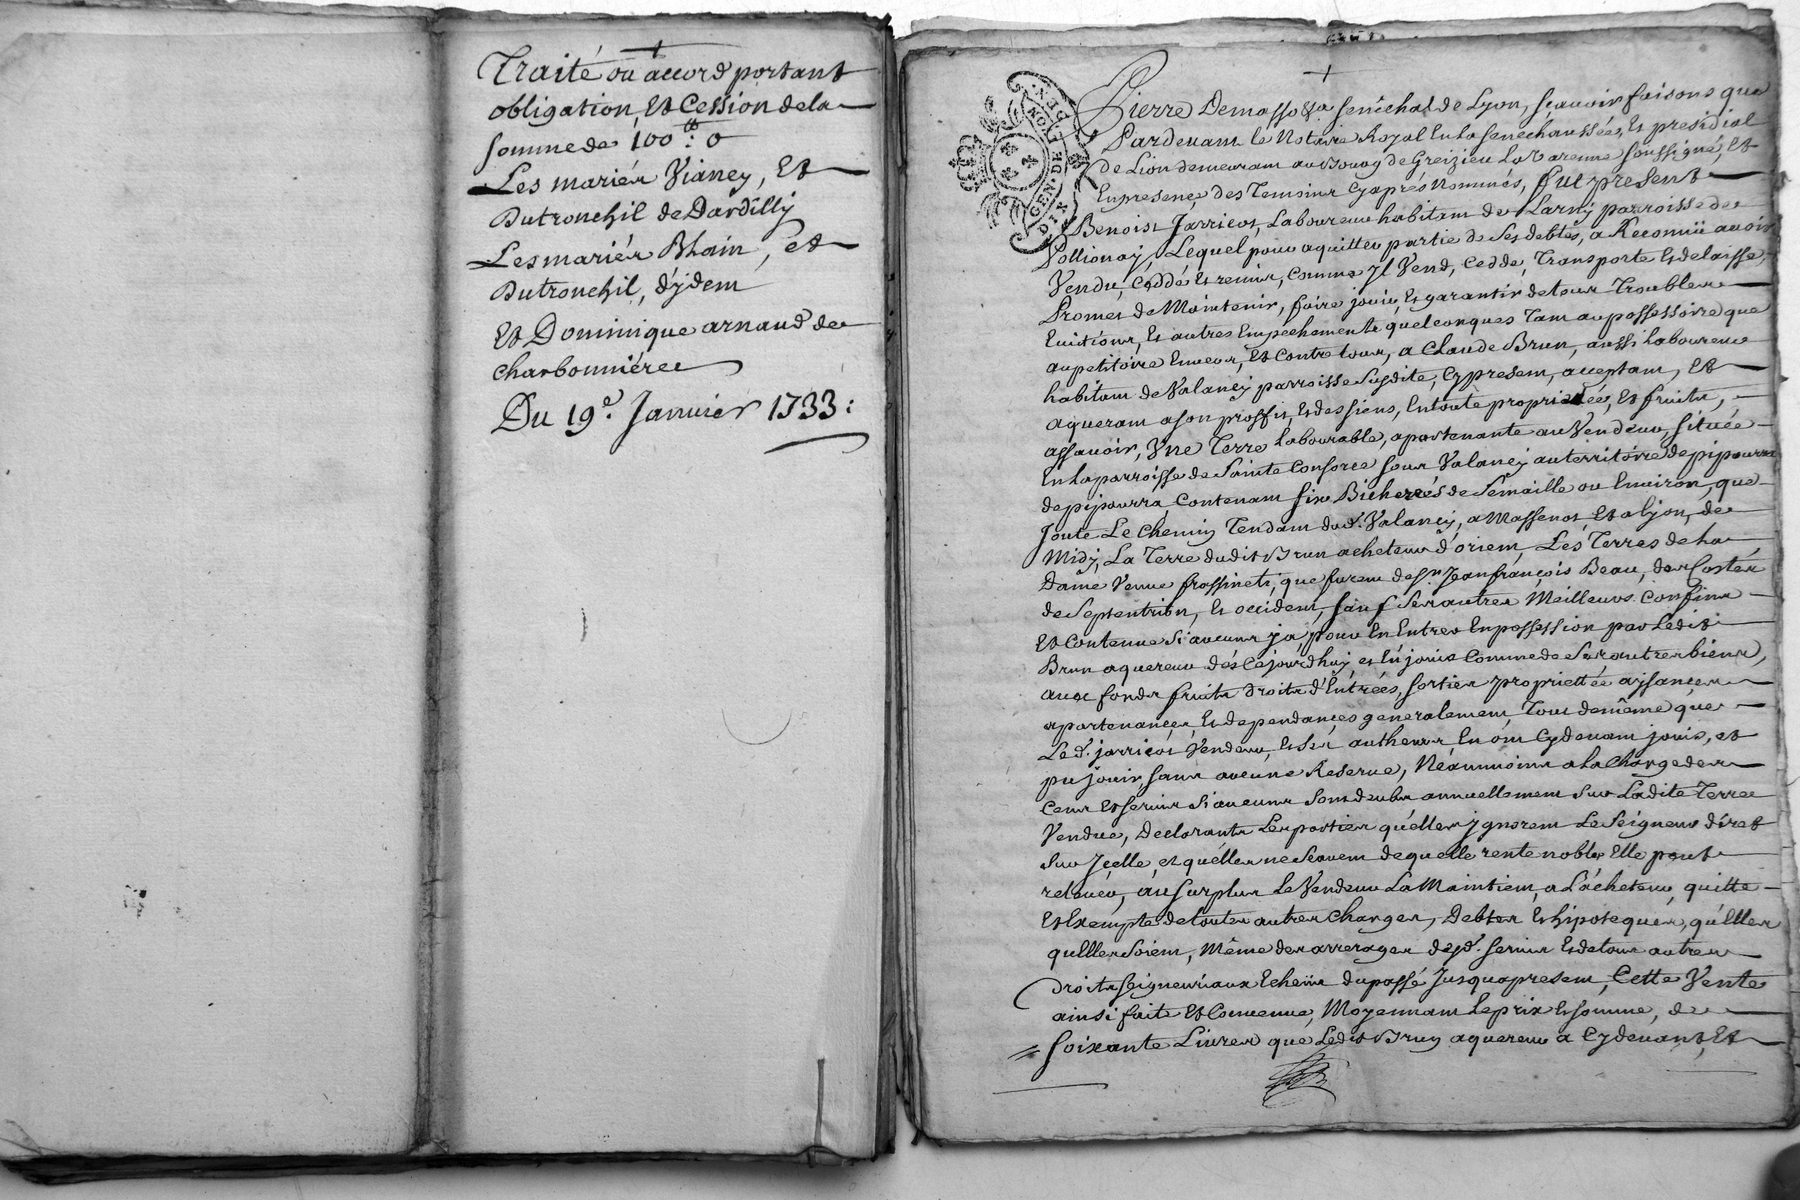 Traité ou accord portant
obligation, Et Cession dela
somme de 100 ₶: 0
Les mariés Vianey, Et
Dutronchil de Dardilly
Les mariés Blain, et
Dutronchil, d'ydem
Et Dominique arnaud de
charbonniéres
Du 19e. Janvier 1733:
GEN. DE LYON
DIX DEN.
Pierre Demasso &a. senéchal de Lyon, scavoir faisons que
Pardevant le Notaire Royal En la senechaussée, Et presidial
de Lion demeurant au Bourg de Greizieu La Varenne soussigné, Et
En presence des Temoins cyaprés Nommés, fut present
Benoist Jarricot, Laboureur habitant de Larny parroisse de
Pollionay, Lequel pour aquitter partie de ses debtes, a Reconnü avoir
Vendu, Ceddé Et remis, comme Jl Vend, Cedde, Transporte Et delaisse,
Promet de Maintenir, faire jouir, Et garantir de tous Troubles
Evictions, Et autres Empechements quelconques Tant au possessoire que
au petitoire Envers, Et Contre tous, a Claude Brun, aussi Laboureur
habitant de Valancy parroisse Susdite, Cy present, acceptant, Et
aquerant a son proffit, Et des siens, En toute proprietée, Et fruits,
assavoir, Vne Terre Labourable, apartenante au Vendeur, située
En La parroisse de Sainte Consorce sous Valancy au territoire de pipourra
de pipourra, Contenant six Bicherées de Semaille ou Environ, que
Joute Le Chemin Tendant dud. Valancy, a Massenot, Et a lyon, de
Midy, La Terre dudit Brun acheteur d'orient, Les Terres de La
Dame Veuve frossineti, que furent de sr. Jean françois Beau, des Costes
de Septentrion, Et occident, Sauf Ses autres Meilleurs Confins
Et Contenue si aucuns ja, pour En Entrer En possession par Ledit
Brun aquereur dés Cejourdhuy, et En jouir Comme de Ses autres biens,
aux fonds fruits droits d'Entrées, sorties propriettée aysances
apartenances, Et dependances generalement, Tout de même que
Led. jarricot Vendeur, Et ses autheurs En ont Cydevant jouis, et
pu jouir, sans aucune Reserve, Neanmoins a La Charge des
Cens Et servis si aucuns sont deubs annuellement sur Ladite Terre
Vendue, Declarants Les parties qu'elles Jgnorent Le Seigneur diret
sur Jcelle, et qu'elles ne Scavent de quelle rente noble Elle peut
relever, au surplus Le Vendeur La Maintient, a L'acheteur, quitte
Et Exempte de toutes autres charges, Debtes Et hipoteques, qu'Elles
qu'Elles soient, Même des arrerages desd. servis Et de tous autres
droits seigneuriaux Echeüs du passé Jusqu'a present, Cette Vente
ainsi faite Et Convenue, Moyennant Le prix Et somme, de
soixante Livres que Ledit Brun aquereur a Cydevant, Et